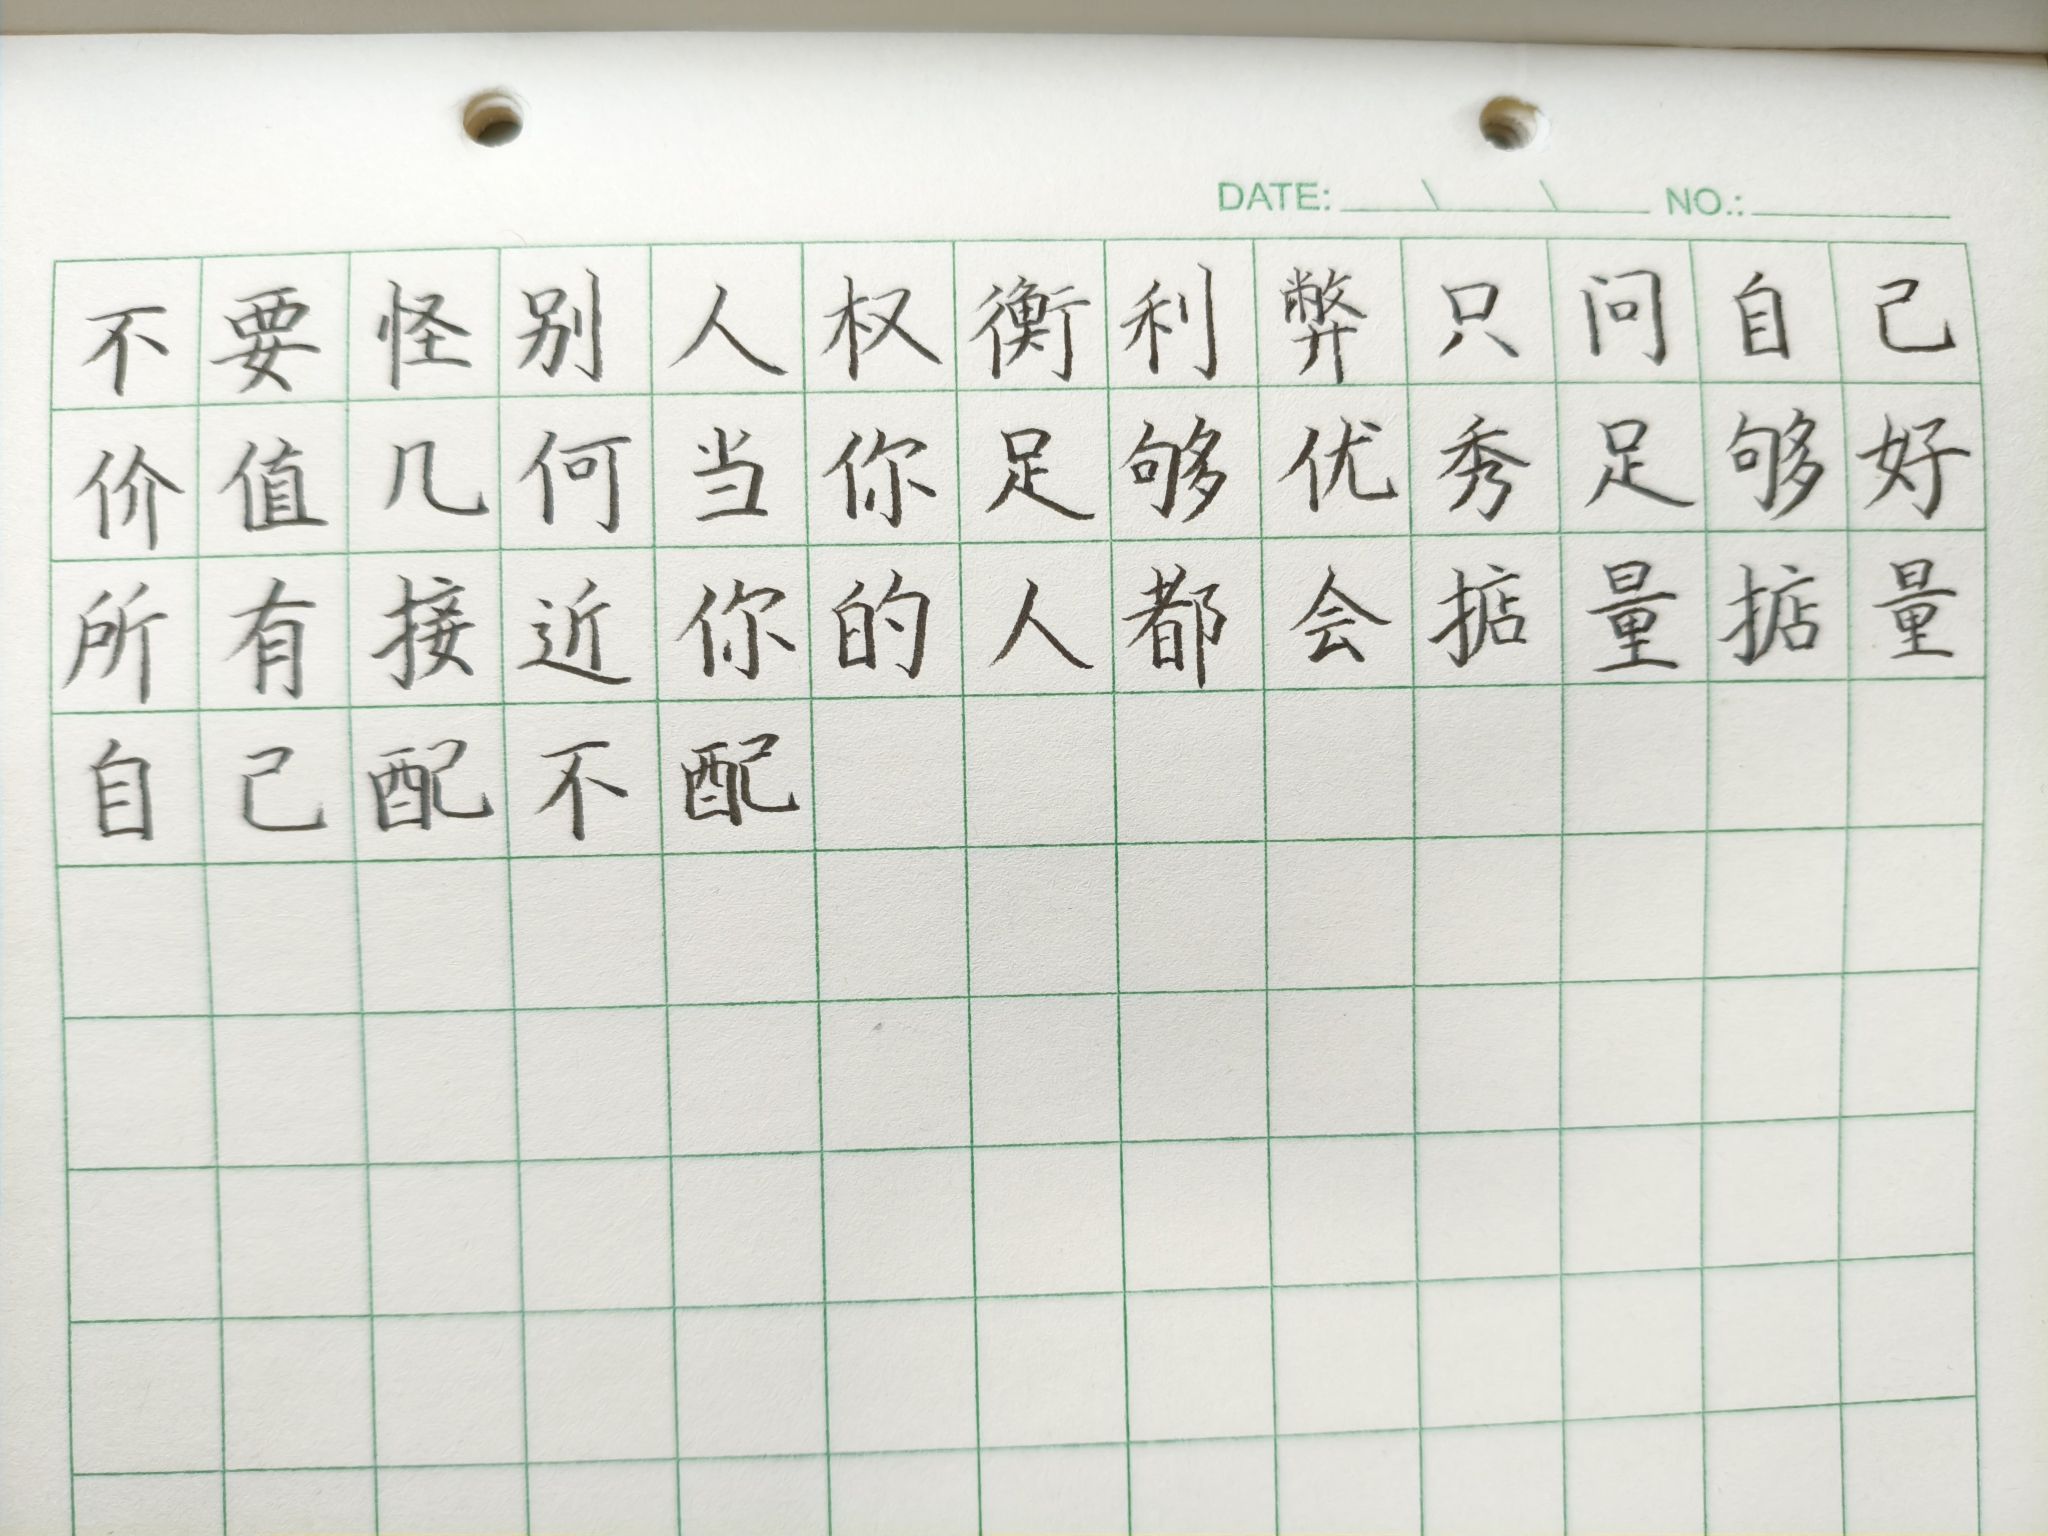 DATE: \ \ NO.:
不要怪别人权衡利弊只问自己
价值几何当你足够优秀足够好
所有接近你的人都会掂量掂量
自己配不配